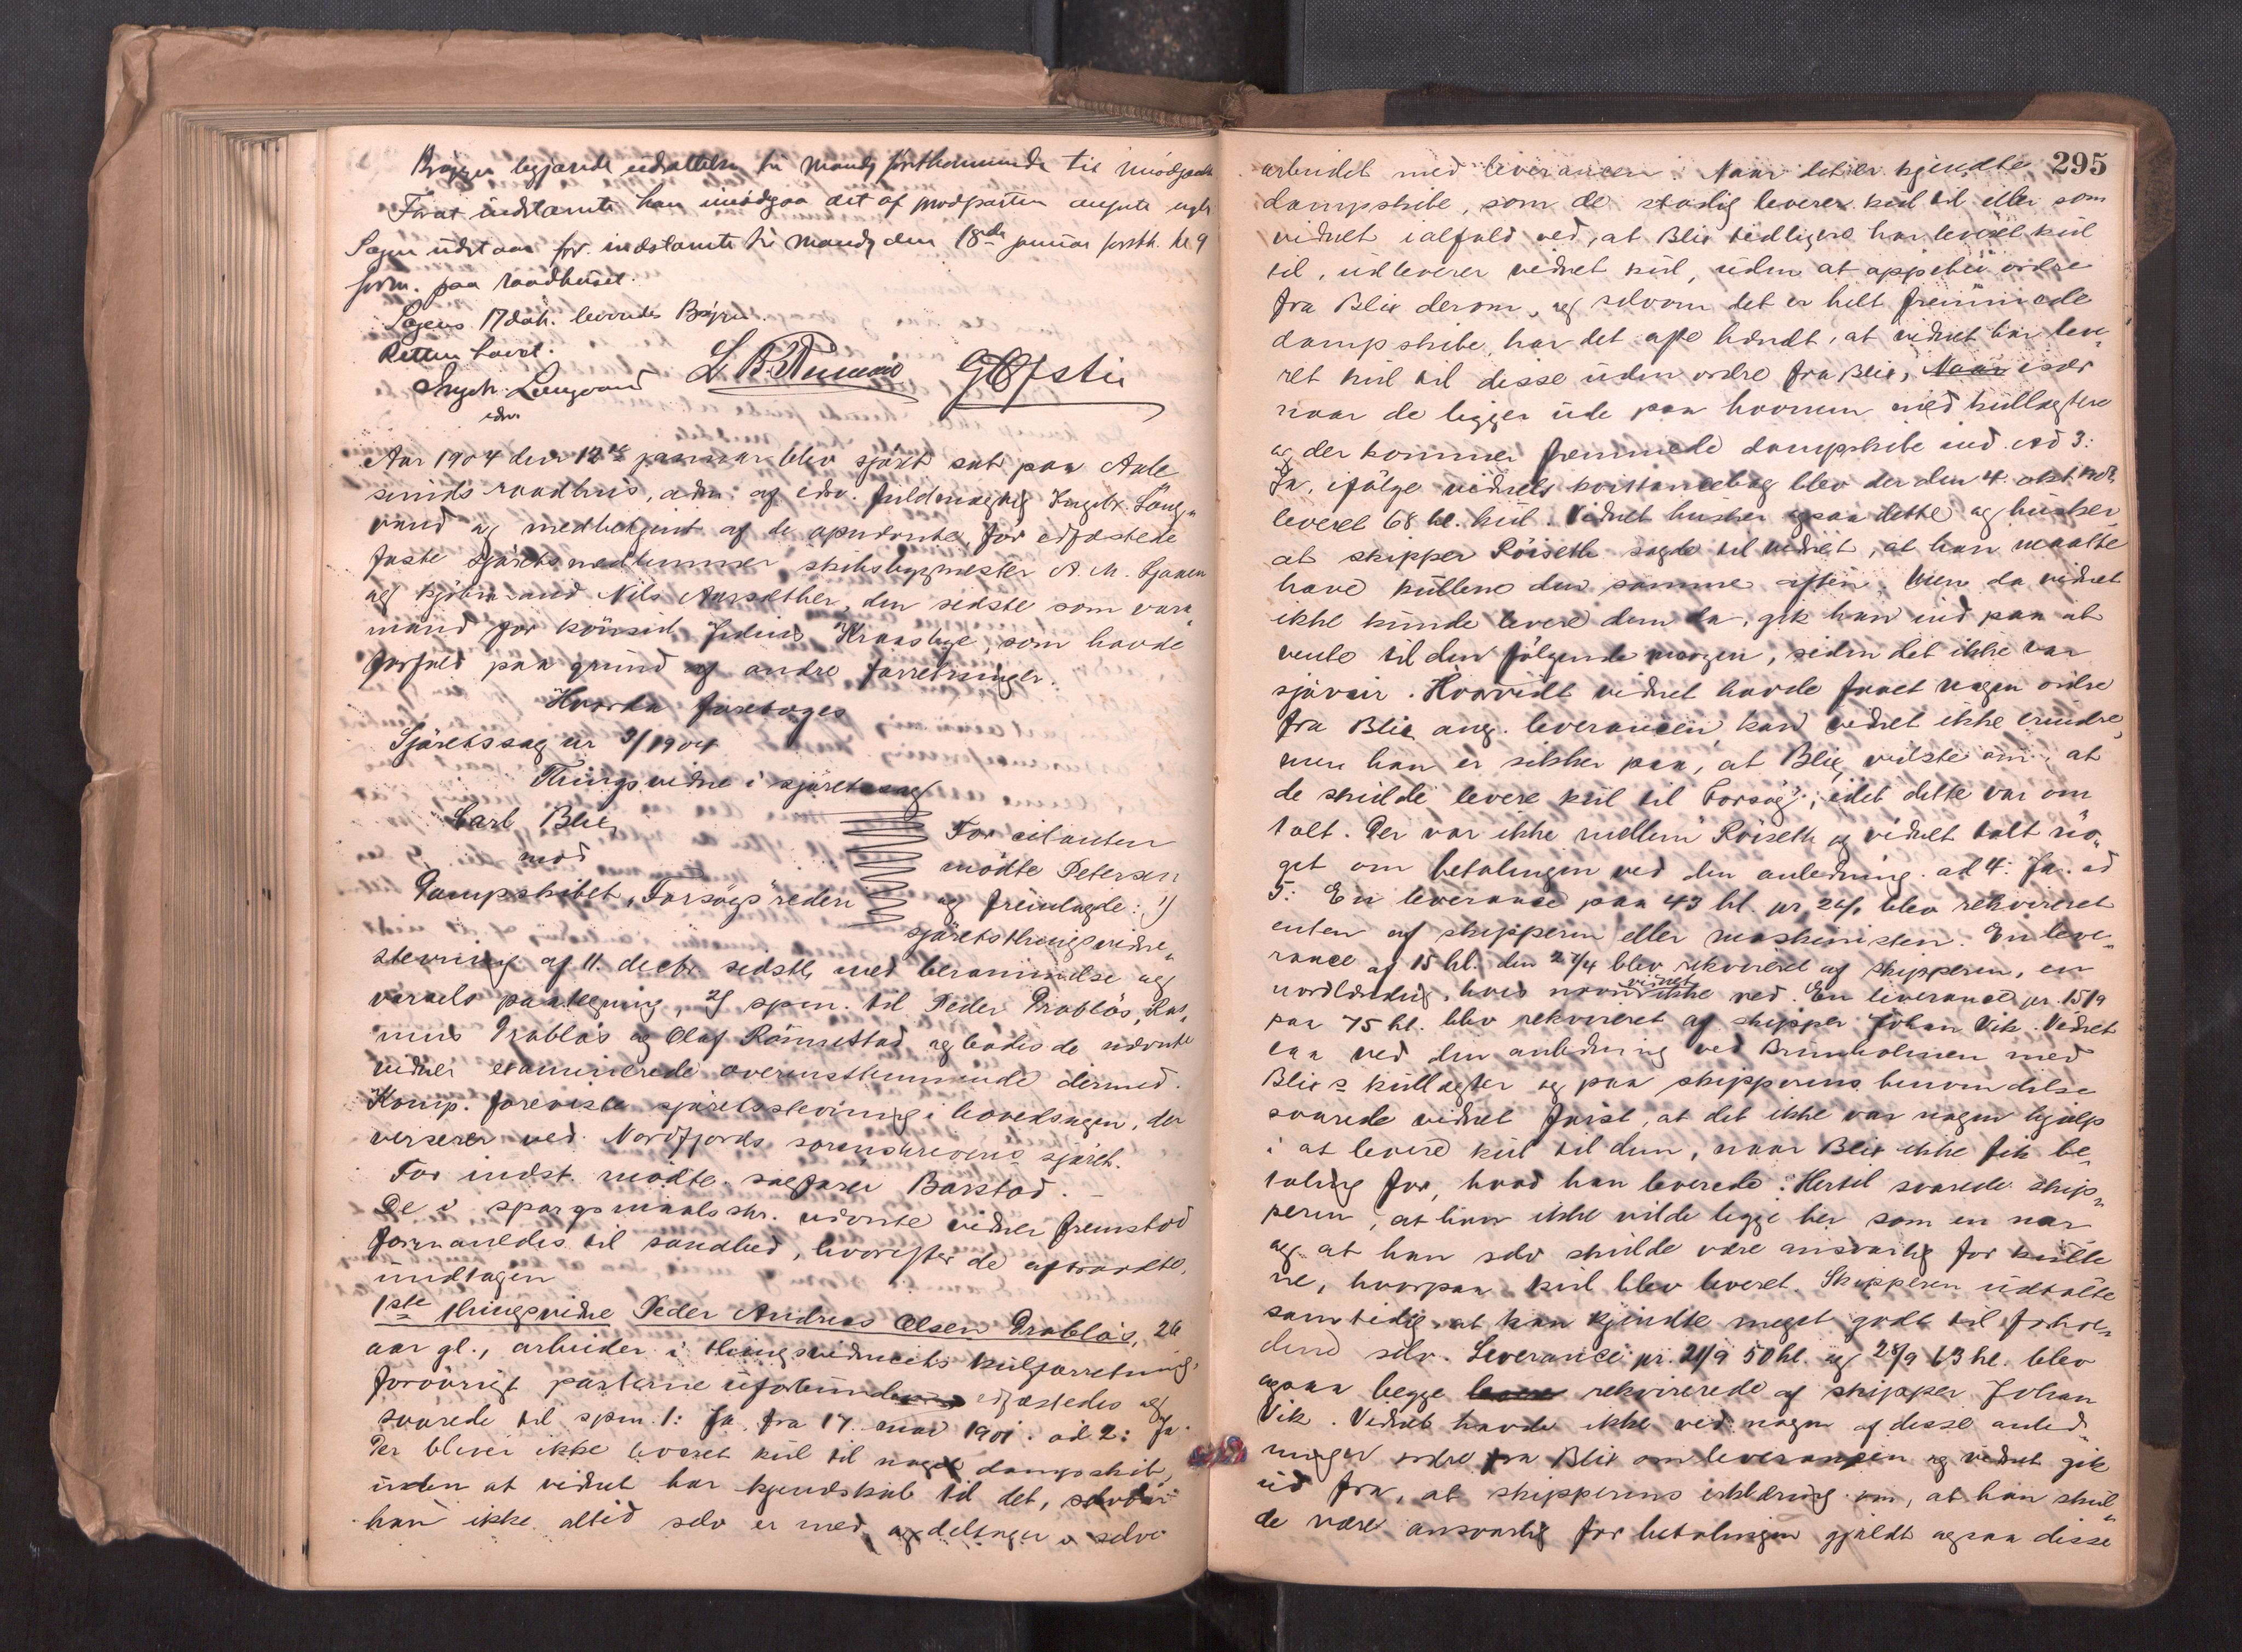 begjærede udsættelse til mandg førstkommende til
For at indstævnte kan imødegaa det af modparten
Sagen udstaar for indstævnte til mandg den 18de januar førstk. kl 9
form. paa raadhuset.
Sagens 17 dok. leveredes
Retten hævet.
Ingebr. Langvand
edsv.
Aar 1904 den 12te januar blev sjøret sat paa Aale
sunds raadhus, adm. af edsv. fuldmægtig Ingebr. Lang"
vand og medbetjent af de opnævnte, før edfæstede
faste sjøretsmedlemmer skibsbygmester A. M.
og kjøbmand Nils Aarsæther, den sidste som vara"
mand for konsul Julius som havde
forfald paa grund af andre forretninger.
Hvorda foretoges
Sjøretssag nr 3/1904
Thingsvidne i sjøretssag
Carl Blix
mod
Dampskibet "Forsøgs" rederi
For citanten
mødte Petersen
og fremlagde: 1)
sjøretsthingsvidne"
stevning af 11. decbr sidstl, med berammelse og
varsels paategning, 2) spm. til Peder Drabløs, Ras"
mus Drabløs og Olaf Rønnestad og lodes de nævnte
vidner examinerede overensstemmende dermed.
Komp. foreviste sjøretsstevning i hovedsagen, der
verserer ved Nordfjords sorenskriveris sjøret.
For indst. mødte sagfører Barstad.
De i spørgsmaalsskr. nævnte vidner fremstod
formanedes til sandhed, hvorefter de aftraadte,
undtagen
1ste thingsvidne Peder Andreas Olsen Drabløs, 26
aar gl., arbeider i kulforretning,
forøvrigt parterne uforbunden edfæstedes og
svarede til spm. 1: Ja fra 17. mai 1901. ad 2: Ja.
Der blever ikke leveret kul til noget dampskib,
uden at vidnet har kjendskab til det, selvom
han ikke altid selv er med og deltager i selve
295
arbeidet med leverancen. Naar det er kjendte
dampskibe, som de stadig leverer kul til eller som
vidnet ialfald ved, at Blix tidligere har leveret kul
til, udleverer vidnet kul, uden at oppebie ordre
fra Blix derom, og selvom det er helt fremmede
dampskibe, har det ofte hændt, at vidnet har leve"
ret kul til disse uden ordre fra Blix, især
naar de ligger ude paa havnen med kullægtere
og der kommer fremmede dampskibe ind. ad 3:
Ja, ifølge vidnets kvitteringsbog blev der den 4. okt. 1902
leveret 68 hl. kul. Vidnet husker ogsaa dette og husker
at skipper Røiseth sagde til vidnet, at han maatte
have kullene den samme aften. Men da vidnet
ikke kunde levere dem da, gik han ind paa at
vente til den følgende morgen, siden det ikke var
sjøveir. Hvorvidt vidnet havde faaet nogen ordre
fra Blix ang. leverancen kan vidnet ikke erindre,
men han er sikker paa, at Blix vidste om, at
de skulde levere kul til "Forsøg", idet dette var om
talt. Der var ikke mellem Røiseth og vidnet talt no"
get om betalingen ved den anledning. ad 4: Ja. ad
5: En leverance paa 43 hl. pr blev rekvireret
enten af skipperen eller maskinisten. En leve"
rance af 15 hl. den 27/4 blev rekvireret af skipperen, en
nordlænding, hvis navn vidnet ikke ved. En leverance pr. 15/9
paa 75 hl. blev rekvireret af skipper Johan Vik. Vidnet
laa ved den anledning ved Brunholmen med
Blix's kullægter og paa skipperens henvendelse
svarede vidnet først, at det ikke var nogen hjælp
i at levere kul til dem, naar Blix ikke fik be"
taling for, hvad han leverede. Hertil svarede skip"
peren, at han ikke vilde ligge her som en nar
og at han selv skulde være ansvarlig for kulle
ne, hvorpaa kul blev leveret. Skipperen udtalte
samtidig, at han kjendte meget godt til forhol"
dene selv. Leverance pr. 21/9 50 hl. og 28/9 63 hl. blev
ogsaa begge rekvirerede af skipper Johan
Vik. Vidnet havde ikke ved nogen af disse anled"
ninger ordre fra Blix om leverancen og vidnet gik
ud fra, at skipperens erklæring om, at han skul"
de være ansvarlig for betalingen gjældt ogsaa disse